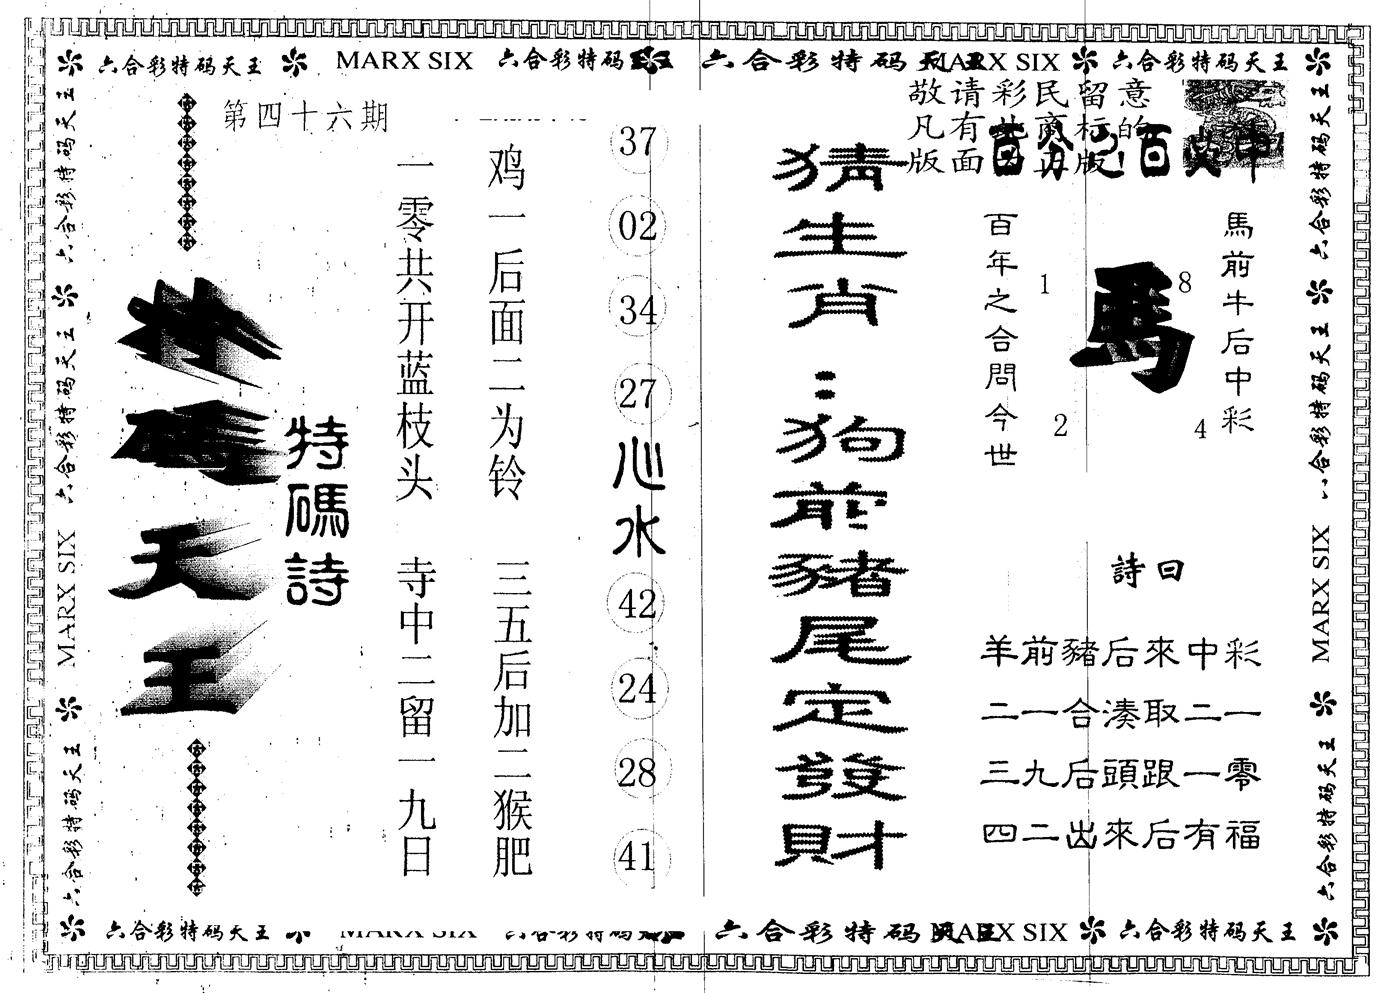 六合彩特码天王 MARX SIX 六合彩特码天王 六合彩特码天王 MARX SIX 六合彩特码天王
第四十六期
敬请彩民留意
凡有此商标的
版面为正版!
百分之百中
特碼天王
特碼詩
一零共开蓝枝头 寺中二留一九日
鸡一后面二为铃 三五后加二猴肥
37
02
34
27
心水
42
24
28
41
猜生肖:狗前豬尾定發財
馬前牛后中彩
馬
8
1
2
4
百年之合問今世
詩曰
羊前豬后來中彩
二一合湊取二一
三九后頭跟一零
四二出來后有福
六合彩特码天王 六合彩特码天王 MARX SIX 六合彩特码天王
六合彩特码天王 六合彩特码天王 MARX SIX 六合彩特码天王
六合彩特码天王 MARX SIX 六合彩特码天王 六合彩特码天王 MARX SIX 六合彩特码天王